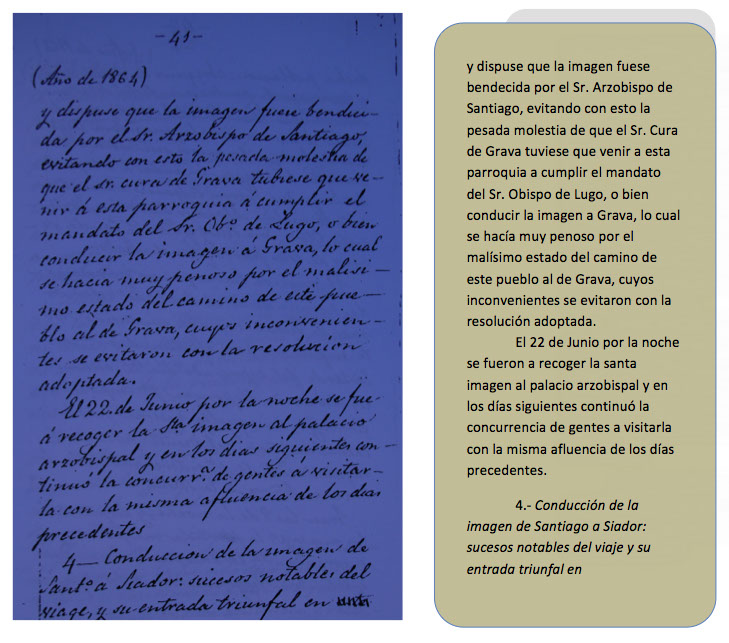 - 41 -
(Año de 1864)
y dispuse que la imagen fuese bendeci-
da por el Sr. Arzobispo de Santiago,
evitando con esto la pesada molestia de
que el sr. cura de Grava tubiese que ve-
nir á esta parroquia á cumplir el
mandato del Sr. Obº. de Lugo, o bien
conducir la imagen á Grava, lo cual
se hacia muy penoso por el malisi-
mo estado del camino de este pue-
blo al de Grava, cuyos inconvenien-
tes se evitaron con la resolucion
adoptada.
El 22 de Junio por la noche se fue
á recoger la Sta imagen al palacio
arzobispal y en los dias siguientes con-
tinuó la concurrª. de gentes á visitar-
la con la misma afluencia de los dias
precedentes
4— Conduccion de la imagen de
Santº. á Siador: sucesos notables del
viage, y su entrada triunfal en
y dispuse que la imagen fuese
bendecida por el Sr. Arzobispo de
Santiago, evitando con esto la
pesada molestia de que el Sr. Cura
de Grava tuviese que venir a esta
parroquia a cumplir el mandato
del Sr. Obispo de Lugo, o bien
conducir la imagen a Grava, lo cual
se hacía muy penoso por el
malísimo estado del camino de
este pueblo al de Grava, cuyos
inconvenientes se evitaron con la
resolución adoptada.
El 22 de Junio por la noche
se fueron a recoger la santa
imagen al palacio arzobispal y en
los días siguientes continuó la
concurrencia de gentes a visitarla
con la misma afluencia de los días
precedentes.
4.- Conducción de la
imagen de Santiago a Siador:
sucesos notables del viaje y su
entrada triunfal en